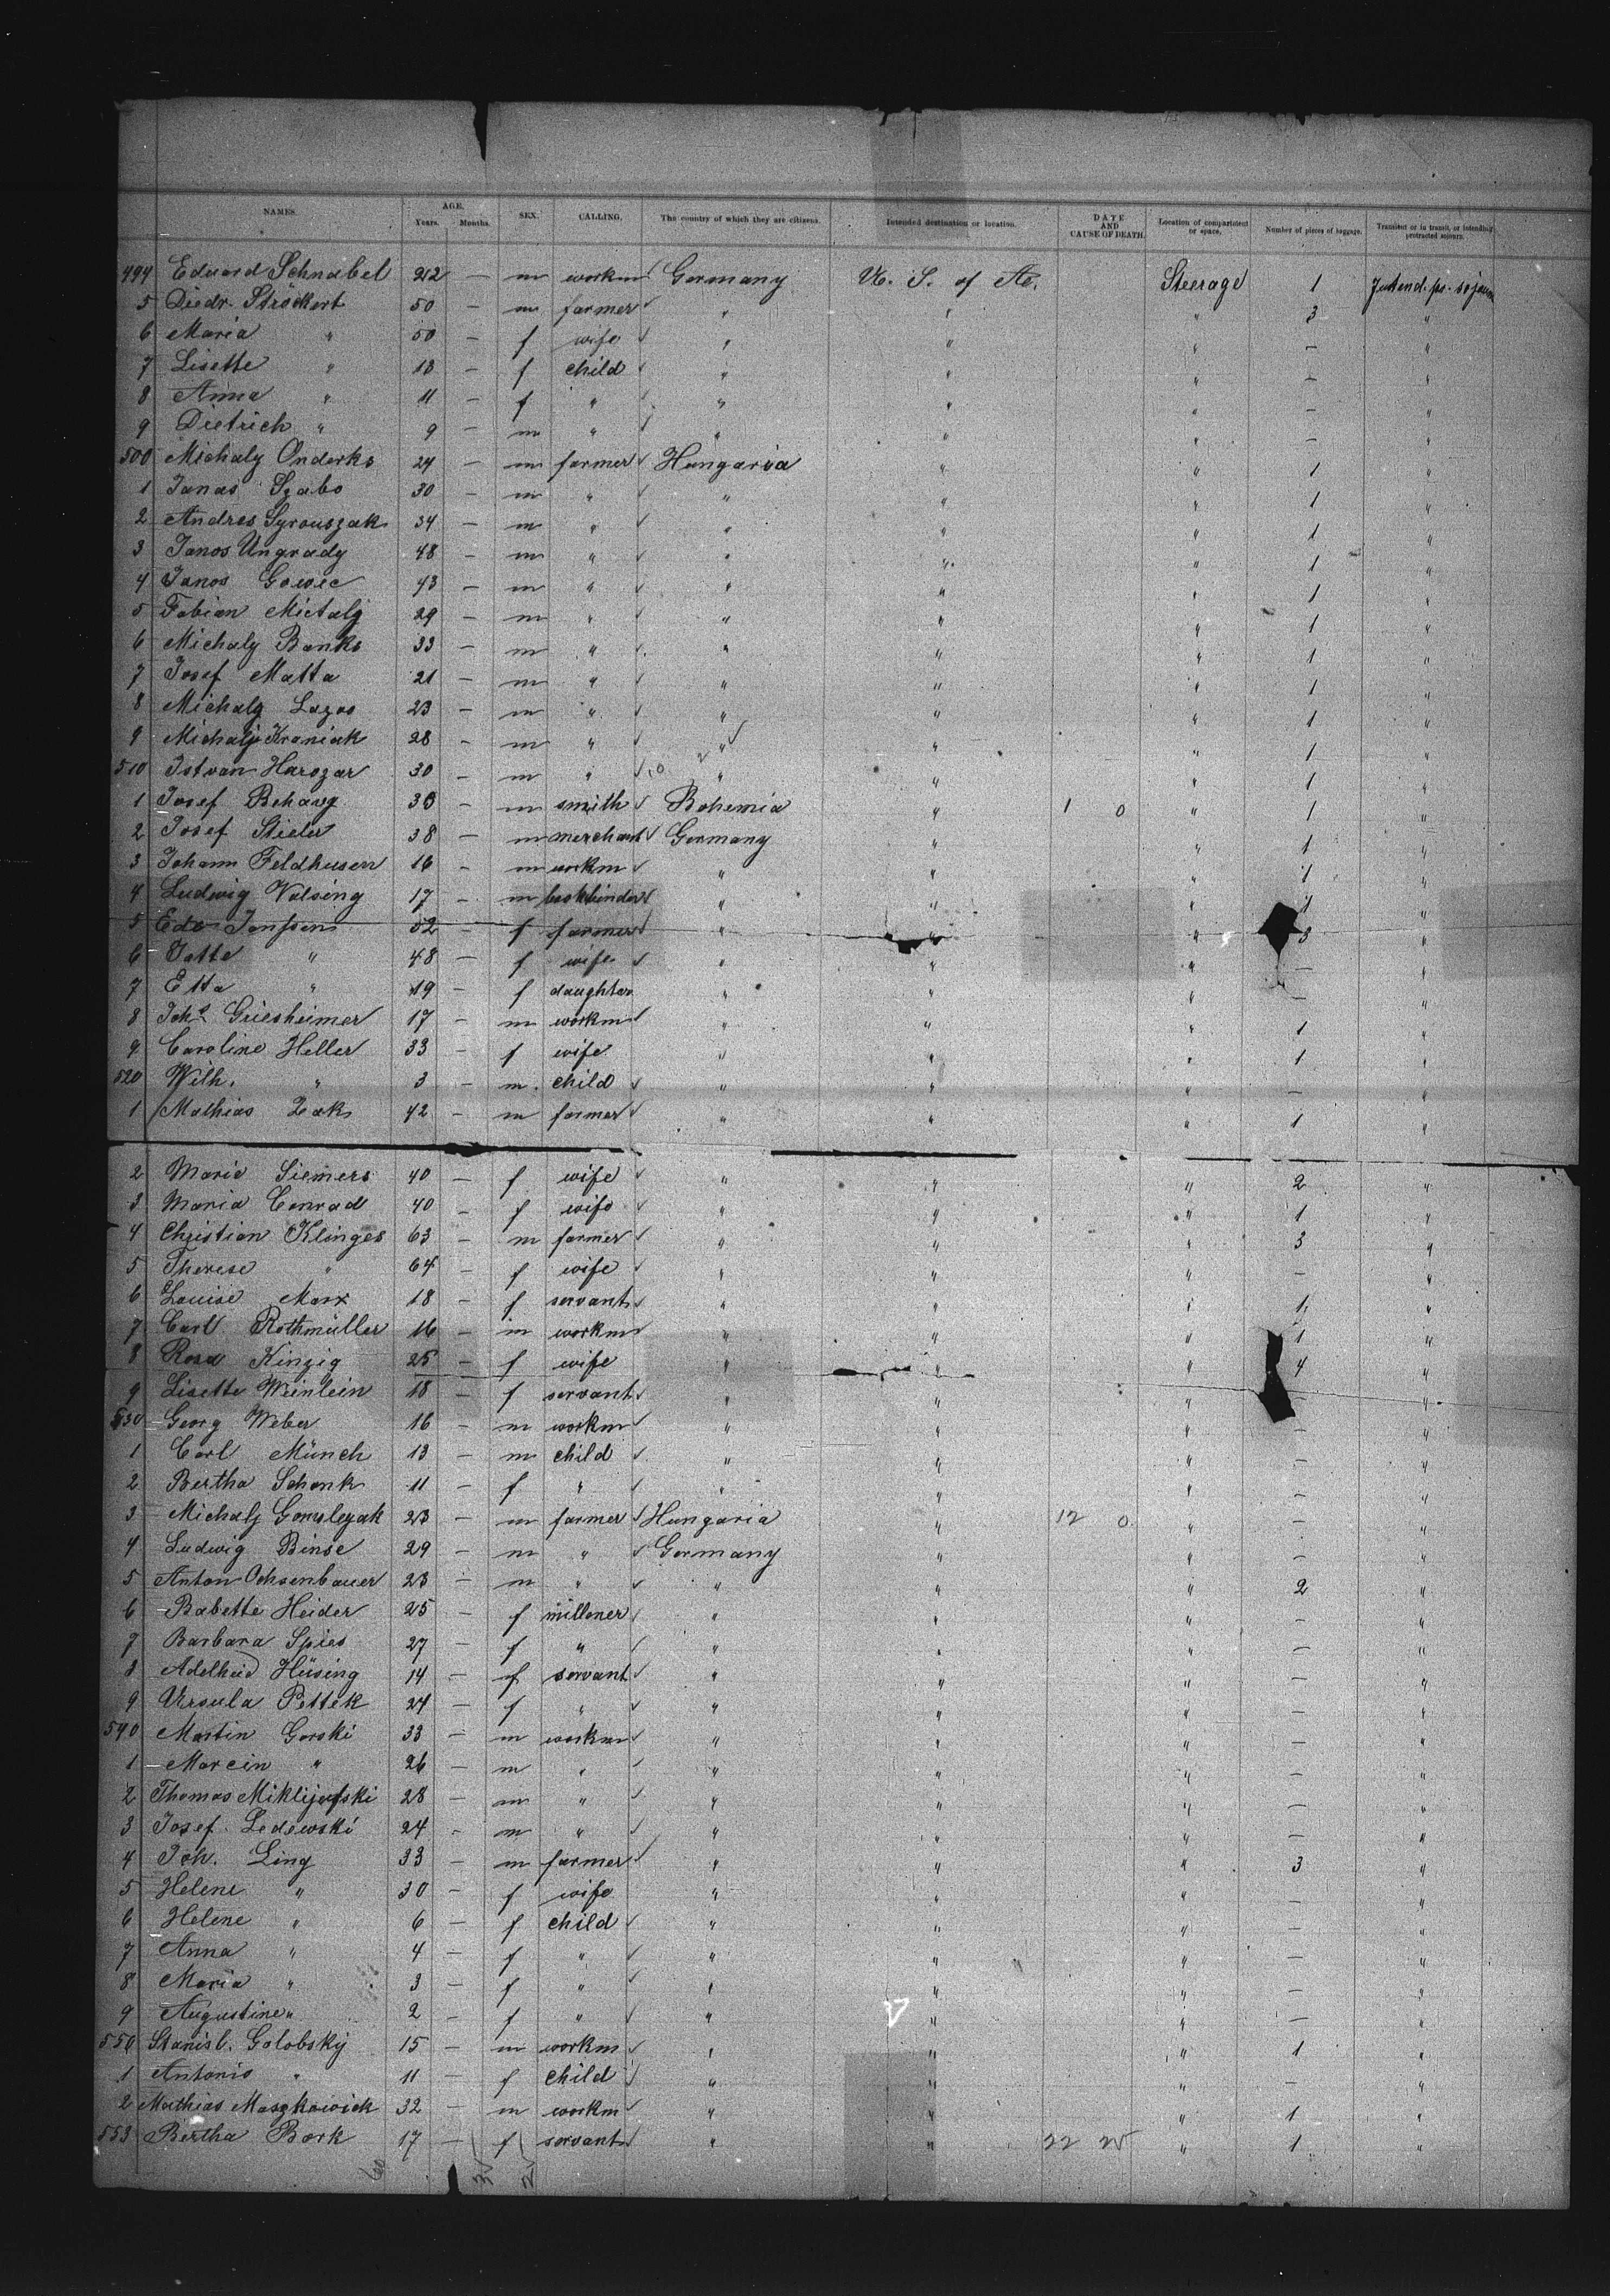 NAMES. AGE. Years. Months. SEX. CALLING. The country of which they are citizens. Intended destination or location. DATE AND CAUSE OF DEATH. Location of compartment or space. Number of pieces of baggage. Transient or in transit, or intending protracted sojourn.
494 Eduard Schnabel 22 — m workm Germany U. S. of A. Steerage 1 Intend. pr. sojourn
5 Diedr. Ströckert 50 — m farmer " " " 3 "
6 Maria " 50 — f wife " " " — "
7 Lisette " 13 — f child " " " — "
8 Anna " 11 — f " " " " — "
9 Dietrich " 9 — m " " " " — "
500 Michaly Onderko 24 — m farmer Hungaria " " 1 "
1 Janas Szabo 30 — m " " " " 1 "
2 Andros Syrouszak 34 — m " " " " 1 "
3 Janos Ungrady 48 — m " " " " 1 "
4 Janos Gowic 43 — m " " " " 1 "
5 Fabian Mictalj 29 — m " " " " 1 "
6 Michaly Banko 33 — m " " " " 1 "
7 Josef Matta 21 — m " " " " 1 "
8 Michaly Lazos 23 — m " " " " 1 "
9 Michalj Kraniak 28 — m " " " " 1 "
510 Istvan Harozar 30 — m " " " " 1 "
1 Josef m smith Bohemia " 1 0 " 1 "
2 Josef Stieler 38 — m merchant Germany " " 1 "
3 Johann Feldhusen 16 — m workm " " " 1 "
4 Ludwig Volsing 17 — m bookbinder " " " 1 "
5 Edo Janssen 52 — f farmer " " " 3 "
6 Tatte " 48 — f wife " " " — "
7 Etta " 19 — f daughter " " " — "
8 Johs Griesheimer 17 — m workm " " " 1 "
9 Caroline Heller 33 — f wife " " " 1 "
520 Wilh. " 3 — m child " " " — "
1 Mathias Zak 42 — m farmer " " " 1 "
2 Marie Siemers 40 — f wife " " " 2 "
3 Maria Conrad 40 — f wife " " " 1 "
4 Christian Klinges 63 — m farmer " " " 3 "
5 Therese " 64 — f wife " " " — "
6 Louise Marx 18 — f servant " " " 1 "
7 Carl Rothmüller 16 — m workm " " " 1 "
8 Rosa Kinzig 25 — f wife " " " 4 "
9 Lisette Weinlein 18 — f servant " " " — "
530 Georg Weber 16 — m workm " " " — "
1 Carl Münch 13 — m child " " " — "
2 Bertha Schenk 11 — f " " " " — "
3 Michalj Gomslegak 23 — m farmer Hungaria " 12 0 " — "
4 Ludwig Binse 29 — m " Germany " " — "
5 Anton Ochsenbauer 23 — m " " " " 2 "
6 Babette Heider 25 — f millener " " " — "
7 Barbara Spies 27 — f " " " " — "
8 Adelheid Hüsing 14 — f servant " " " — "
9 Ursula Pettek 24 — f " " " " — "
540 Martin Gorski 33 — m workm " " " — "
1 Marcin " 26 — m " " " " — "
2 Thomas Miklijefski 28 — m " " " " — "
3 Josef Ledewski 24 — m " " " " — "
4 Joh. Ling 33 — m farmer " " " 3 "
5 Helene " 30 — f wife " " " — "
6 Helene " 6 — f child " " " — "
7 Anna " 4 — f " " " " — "
8 Maria " 3 — f " " " " — "
9 Augustine " 2 — f " " " " — "
550 Stanisl. Golobskÿ 15 — m workm " " " 1 "
1 Antonio " 11 — f child " " " — "
2 Mathias Maszkowick 32 — m workm " " " 1 "
553 Bertha Bork 17 — f servant " " 22 " 1 "
60